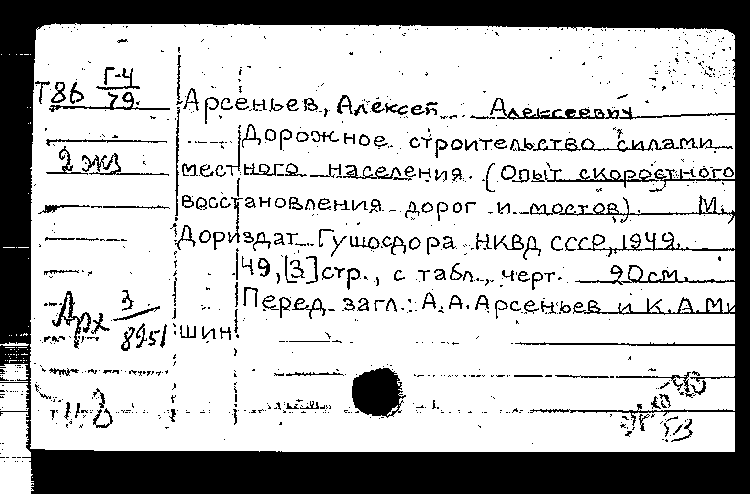 Т86 Г-4
79.
Арсеньев, Алексей Алексеевич
Дорожное строительство силами
2 экз
местного населения. (Опыт скоростного
восстановления дорог и мостов). М.,
Дориздат Гушосдора НКВД СССР, 1949.
49, [3] стр., с табл., черт. 20см.
Перед загл.: А.А.Арсеньев и К.А.Ми
шин
Арх 3
8951